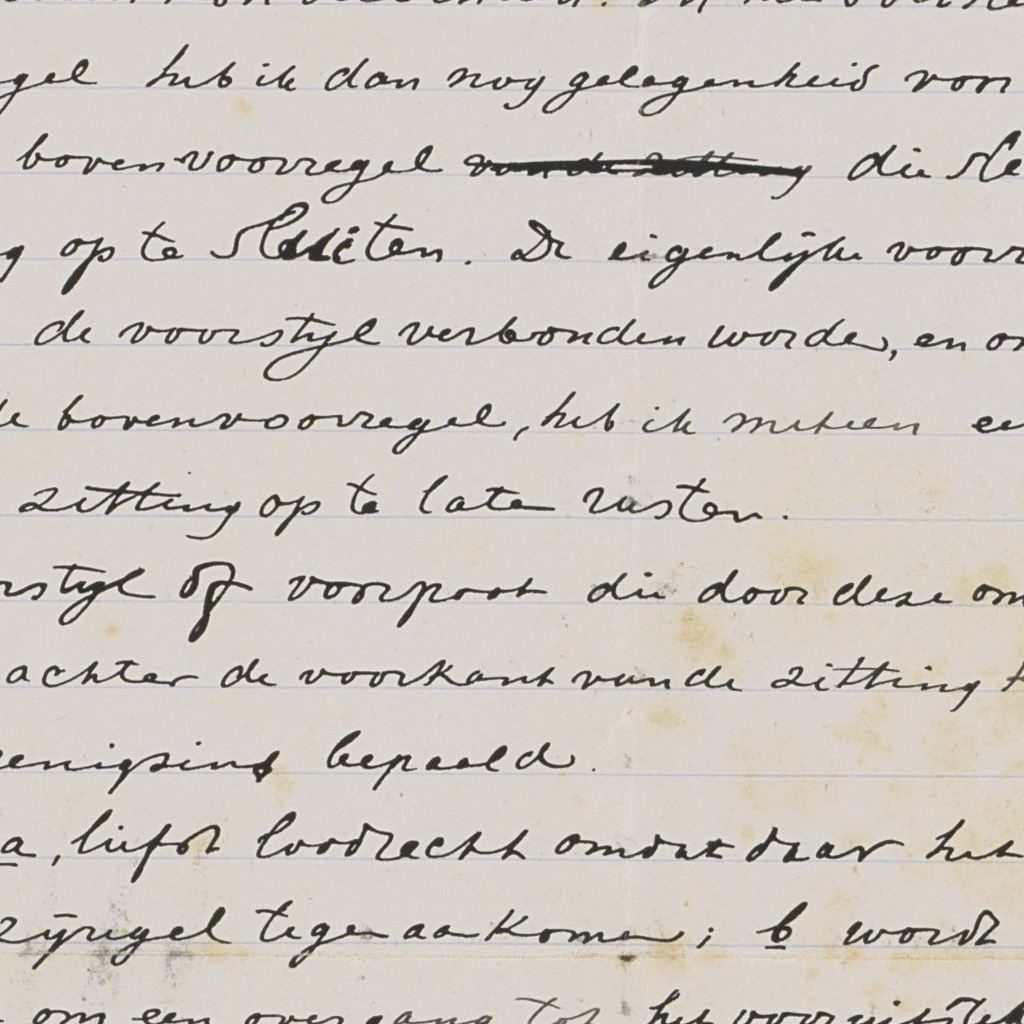 gel heb ik dan nog gelegenheid voor
bovenvoorregel van de zitting die sle
g op te sluiten. De eigenlijke voorr
de voorstijl verbonden worden, en om
de bovenvoorregel, heb ik meteen ee
zitting op te laten rusten.
rstijl of voorpoot die door deze om
achter de voorkant van de zitting k
eenigzins bepaald.
a, liefst loodrecht omdat daar het
zijregel tegenaan komen; b wordt
om een overgang tot het vooruitstek